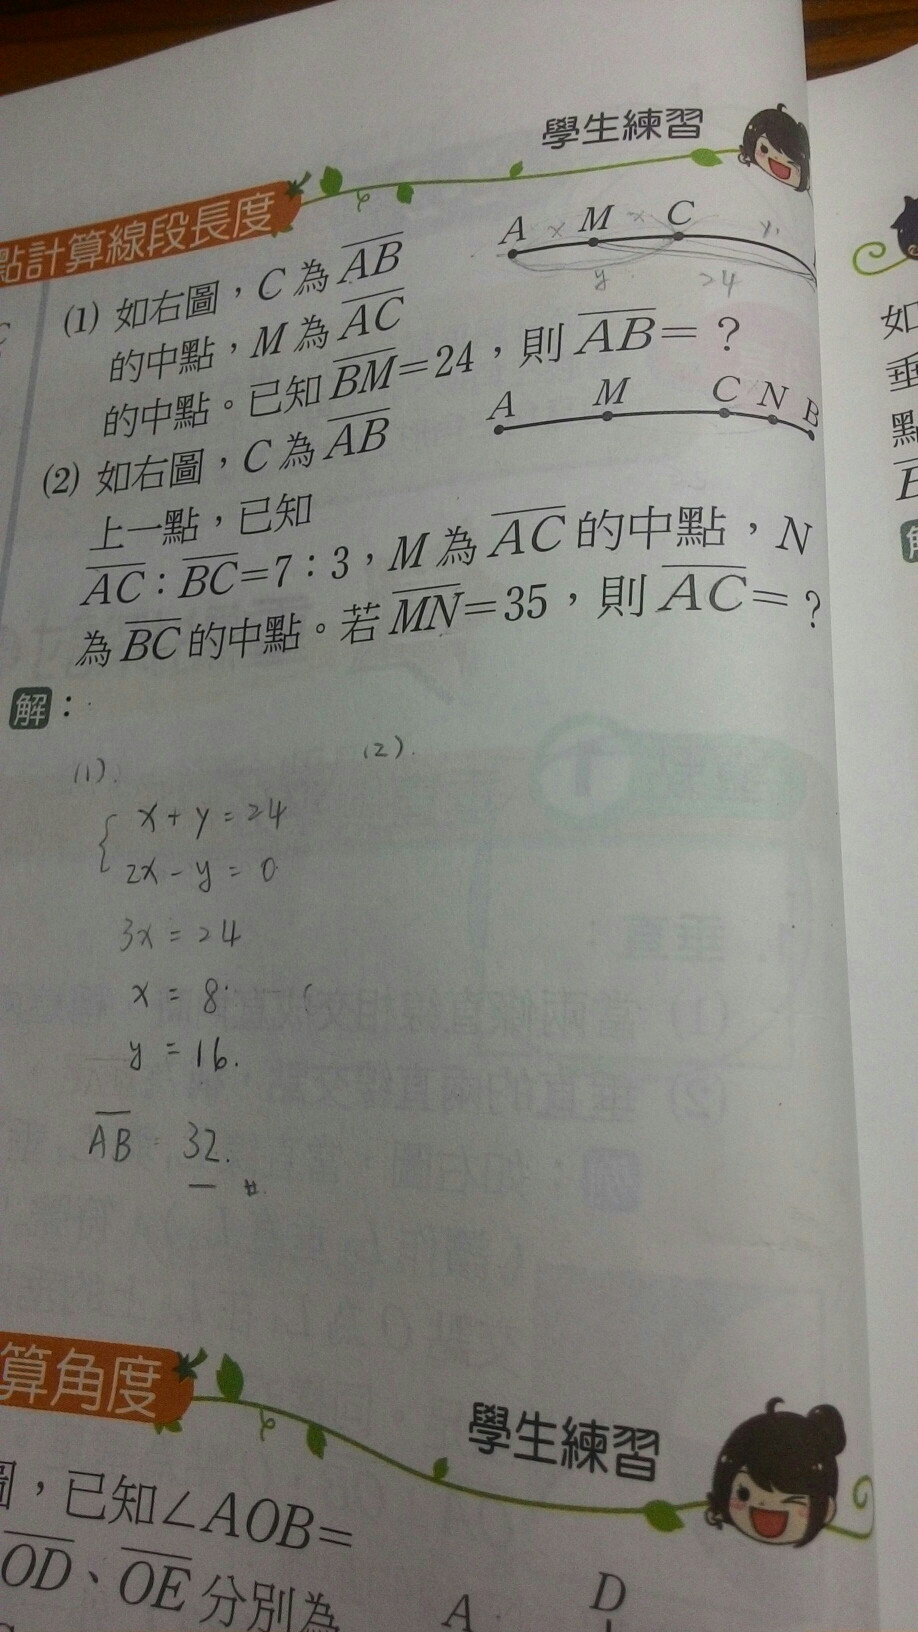 學生練習
點計算線段長度
A x M x C y
y 24
(1) 如右圖，C 為 AB
的中點，M 為 AC
的中點。已知 BM=24，則 AB=？
A M C N B
(2) 如右圖，C 為 AB
上一點，已知
AC：BC=7：3，M 為 AC 的中點，N
為 BC 的中點。若 MN=35，則 AC=？
解：
(1). (2).
x + y = 24
2x - y = 0
3x = 24
x = 8
y = 16.
AB = 32. #
算角度
學生練習
圖，已知∠AOB=
OD、OE 分別為
A D
如
垂
點